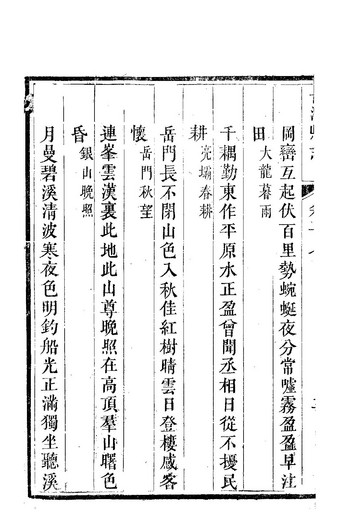 岡巒互起伏百里勢蜿蜒夜分常噓霧盈盈早注
田 大龍暮雨
千耦勤東作平原水正盈曾聞丞相日從不擾民
耕 亮壩春耕
岳門長不閉山色入秋佳紅樹晴雲日登樓感客
懷 岳門秋望
連峯雲漢裏此地此山尊晚照在高頂羣山曙色
昏 銀山晚照
月曼碧溪清波寒夜色明釣船光正滿獨坐聽溪